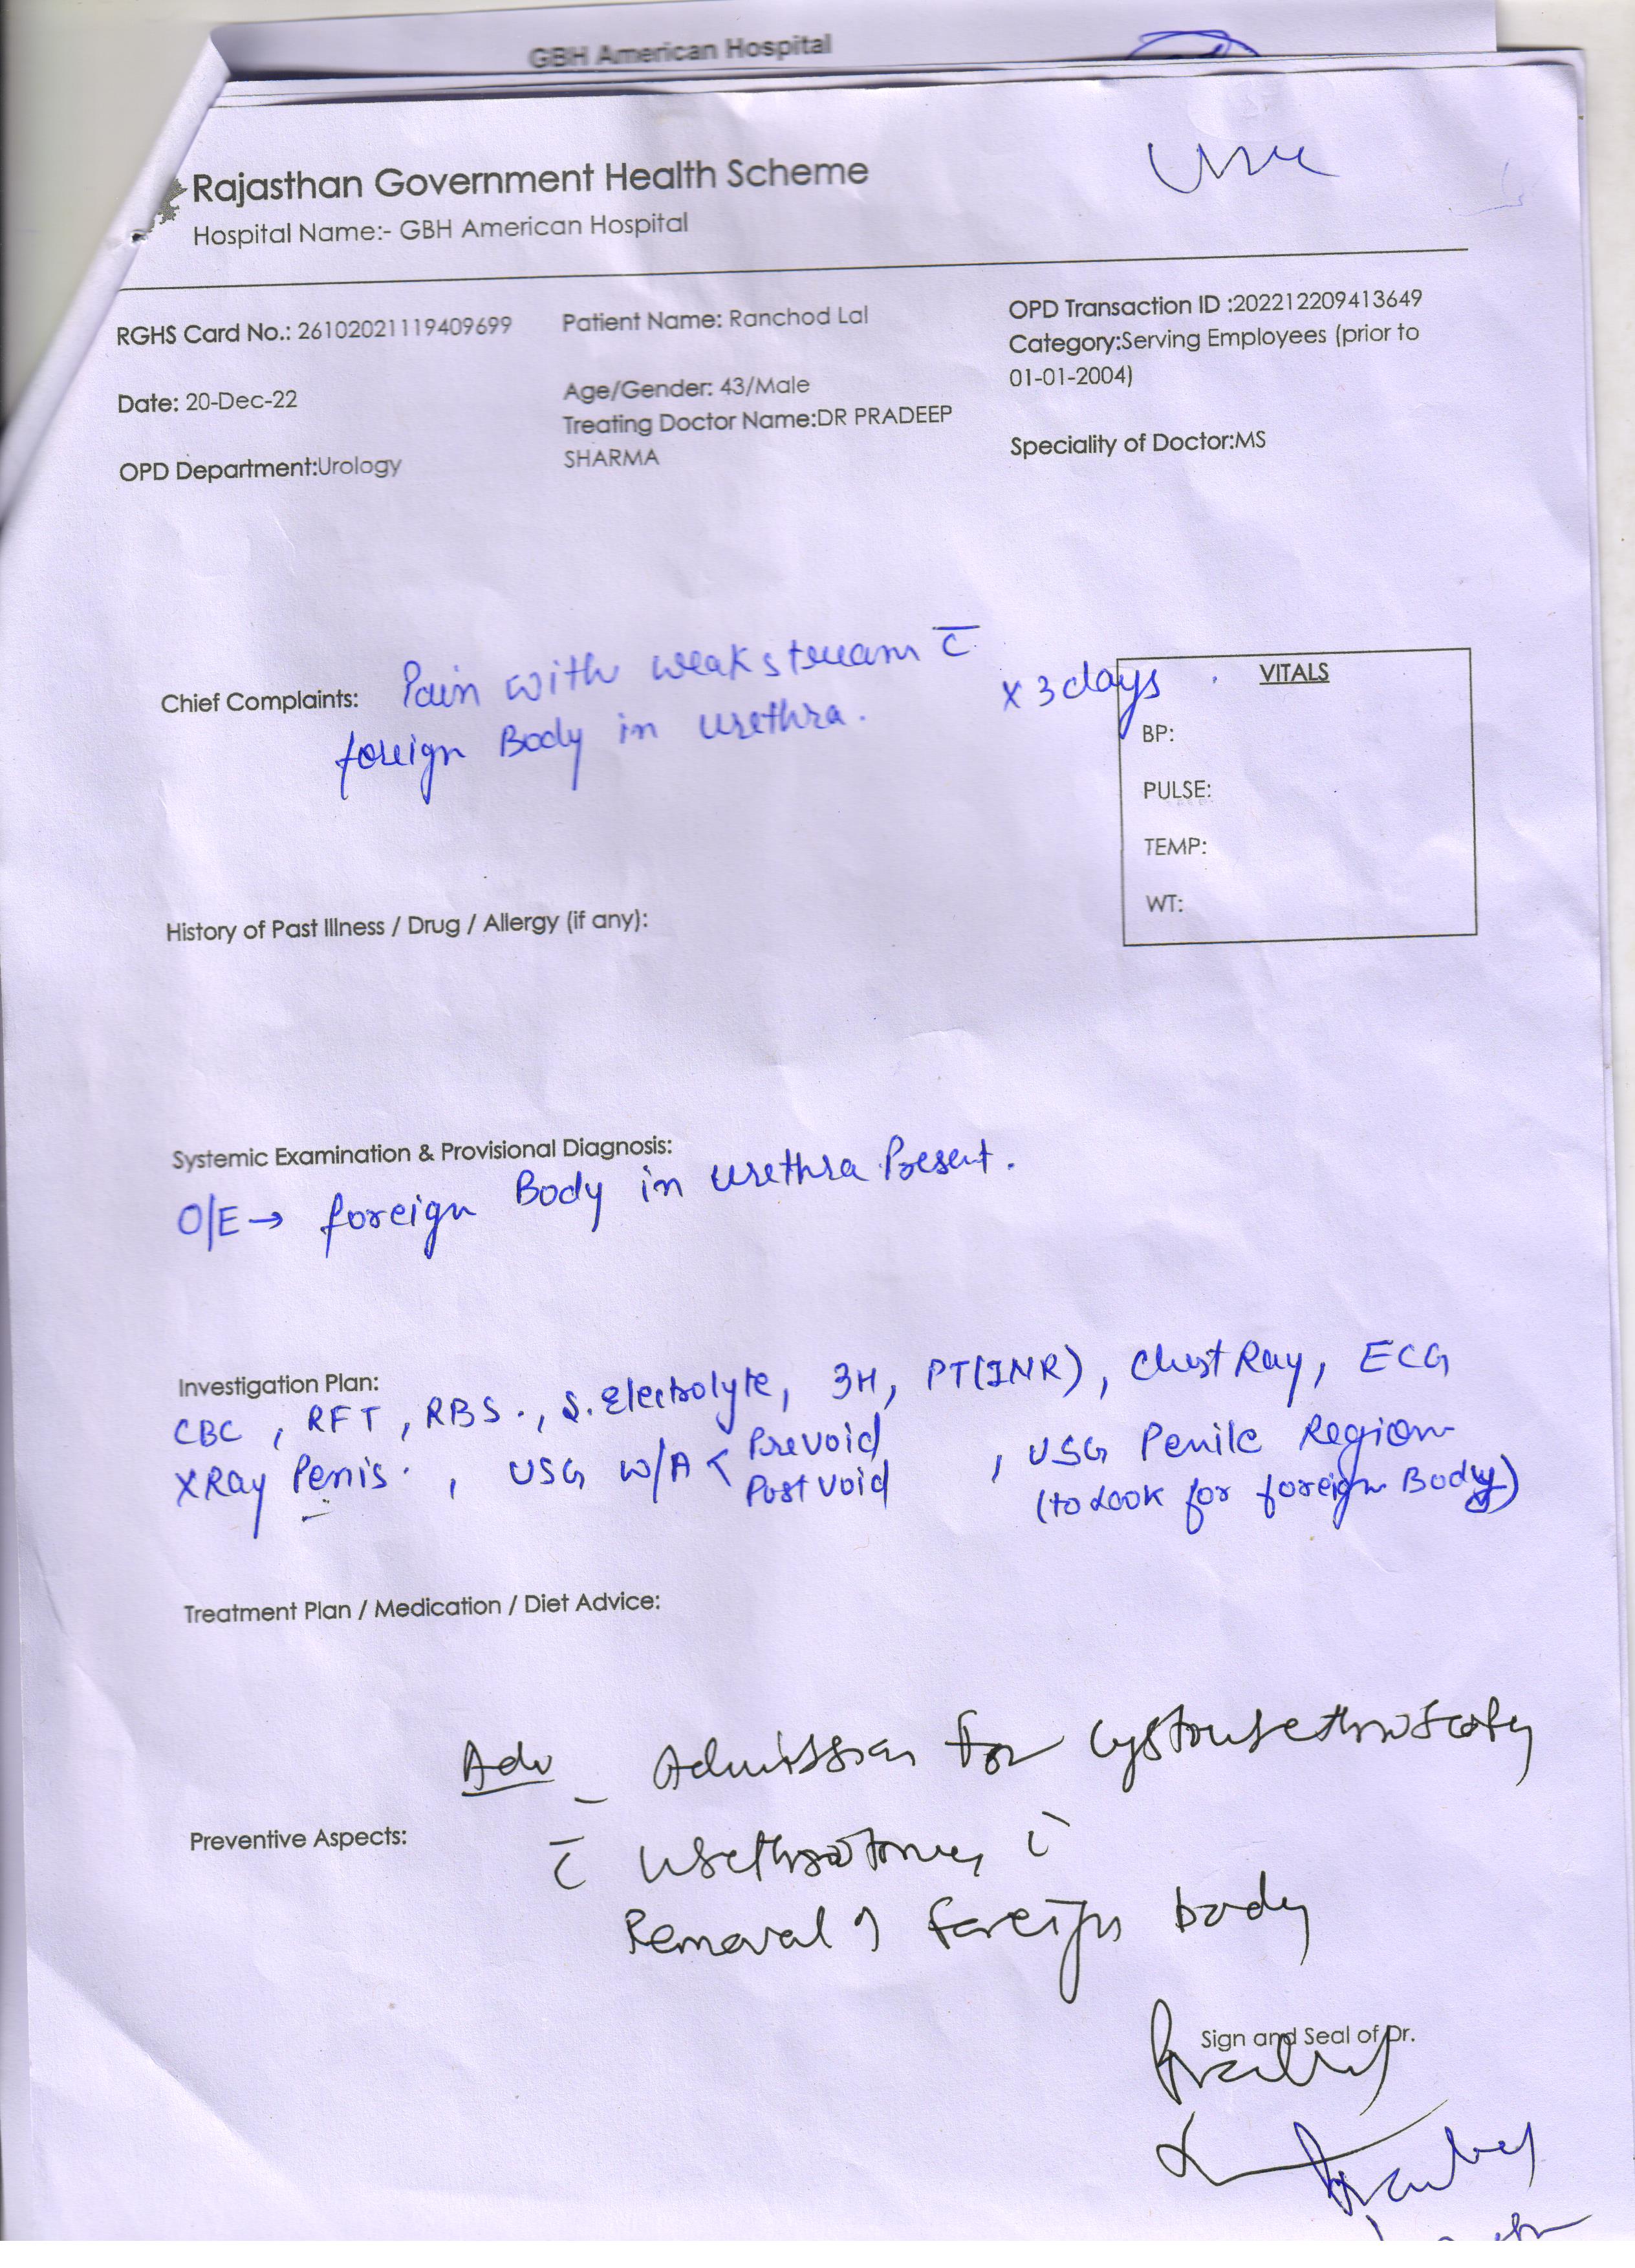 GBH American Hospital
Rajasthan Government Health Scheme
Hospital Name:- GBH American Hospital
RGHS Card No.: 26102021119409699
Patient Name: Ranchod Lal
OPD Transaction ID :202212209413649
Category:Serving Employees (prior to
01-01-2004)
Date: 20-Dec-22
Age/Gender: 43/Male
Treating Doctor Name:DR PRADEEP
SHARMA
OPD Department:Urology
Speciality of Doctor:MS
Chief Complaints: Pain with weak stream c̄
foreign Body in urethra. x 3 days
VITALS
BP:
PULSE:
TEMP:
WT:
History of Past Illness / Drug / Allergy (if any):
Systemic Examination & Provisional Diagnosis:
O/E → foreign Body in urethra Present.
Investigation Plan:
CBC , RFT , RBS ., S. Electrolyte, 3H, PT(INR), Chest Ray, ECG
XRay Penis . , USG W/A < Prevoid
Post void
, USG Penile Region
(to Look for foreign Body)
Treatment Plan / Medication / Diet Advice:
Adv - Admission for Cystourethroscopy
Preventive Aspects:
c̄ Urethrotomy c̄
Removal of foreign body
Sign and Seal of Dr.